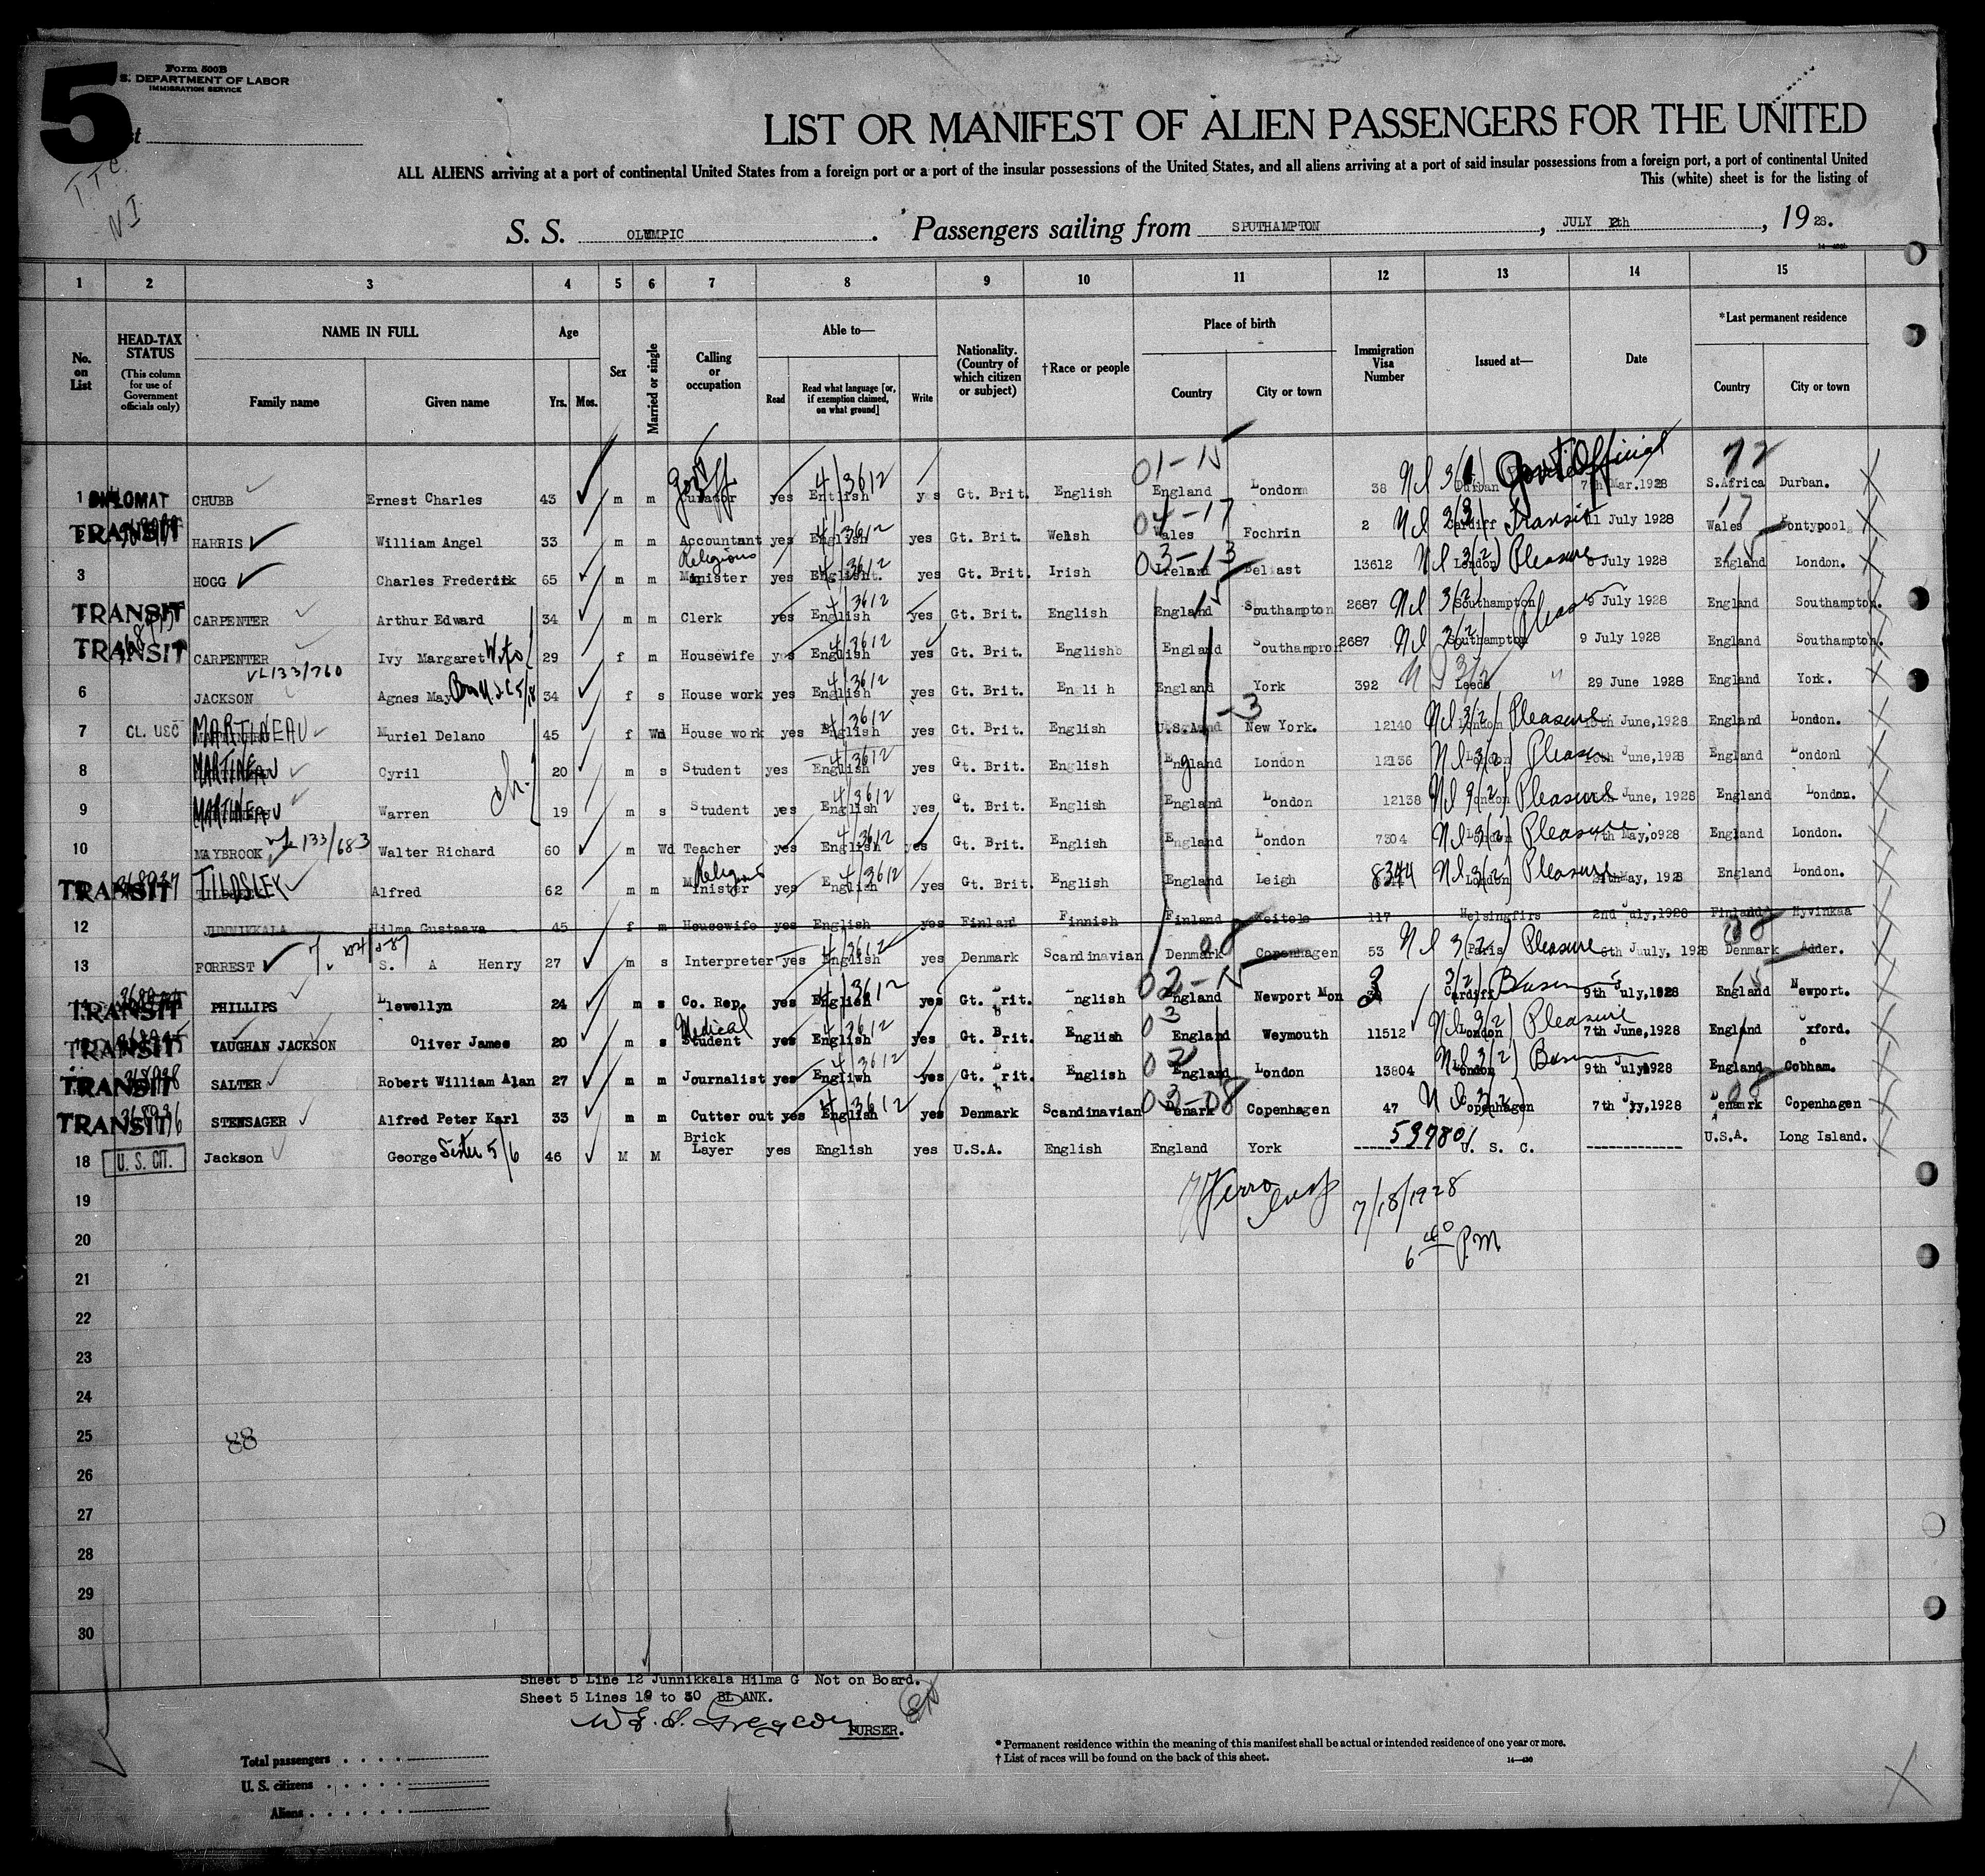 5
Form 500B
S. DEPARTMENT OF LABOR
IMMIGRATION SERVICE
LIST OR MANIFEST OF ALIEN PASSENGERS FOR THE UNITED
ALL ALIENS arriving at a port of continental United States from a foreign port or a port of the insular possessions of the United States, and all aliens arriving at a port of said insular possessions from a foreign port, a port of continental United
This (white) sheet is for the listing of
S. S. OLYMPIC. Passengers sailing from SPUTHAMPTON, JULY 12th, 1928.
1 2 3 4 5 6 7 8 9 10 11 12 13 14 15
No. on List
HEAD-TAX STATUS (This column for use of Government officials only)
NAME IN FULL Family name Given name
Age Yrs. Mos.
Sex
Married or single
Calling or occupation
Able to— Read Read what language [or, if exemption claimed, on what ground] Write
Nationality. (Country of which citizen or subject)
†Race or people
Place of birth Country City or town
Immigration Visa Number
Issued at—
Date
*Last permanent residence Country City or town
1 DIPLOMAT CHUBB Ernest Charles 43 m m Curator yes 4/3612 Gt. Brit. English England London 38 Durban Govt Official 7th Mar.1928 S.Africa Durban.
TRANSIT HARRIS William Angel 33 m m Accountant yes English 4/3612 yes Gt. Brit. Welsh Wales Fochrin 2 Cardiff Transit 11 July 1928 Wales Pontypool
3 HOGG Charles Frederick 65 m m Religious Minister yes English 4/3612 yes Gt. Brit. Irish Ireland Belfast 13612 London Pleasure July 1928 England London.
TRANSIT CARPENTER Arthur Edward 34 m m Clerk yes English 4/3612 yes Gt. Brit. English England Southampton 2687 Southampton 9 July 1928 England Southampton.
TRANSIT CARPENTER Ivy Margaret Wife 29 f m Housewife yes English 4/3612 yes Gt. Brit. English England Southampron 2687 Southampton 9 July 1928 England Southampton.
6 JACKSON Agnes May 34 f s House work yes English 4/3612 yes Gt. Brit. Engli h England York 392 Leeds " 29 June 1928 England York.
7 CL. USC MARTINEAU Muriel Delano 45 f Wd House work yes English 4/3612 yes Gt. Brit. English U.S.A. New York. 12140 London Pleasure June,1928 England London.
8 MARTINEAU Cyril 20 m s Student yes English 4/3612 yes Gt. Brit. English England London 12136 London Pleasure June,1928 England London
9 MARTINEAU Warren ch. 19 m s Student yes English 4/3612 yes Gt. Brit. English England London 12138 London Pleasure June, 1928 England London.
10 MAYBROOK 133/683 Walter Richard 60 m Wd Teacher yes English 4/3612 yes Gt. Brit. English England London 7304 London Pleasure 7th May, 1928 England London.
TRANSIT TILDSLEY Alfred 62 m m Religious Minister yes English 4/3612 yes Gt. Brit. English England Leigh 8344 London Pleasure May, 1928 England London.
12 JUNNIKKALA Hilma Gustaava 45 f m Housewife yes English yes Finland Finnish Finland Keitele 117 Helsingfirs 2nd July,1928 Finland Hyvinkaa
13 FORREST S. A Henry 27 m s Interpreter yes English 4/3612 yes Denmark Scandinavian Denmark Copenhagen 53 Paris Pleasure 6th July, 1928 Denmark Adder.
TRANSIT PHILLIPS Llewellyn 24 m s Co. Rep. yes English 4/3612 yes Gt. Brit. English England Newport Mon Cardiff Business 9th July,1928 England Newport.
TRANSIT VAUGHAN JACKSON Oliver James 20 m s Medical Student yes English 4/3612 yes Gt. Brit. English England Weymouth 11512 London Pleasure 7th June,1928 England Oxford.
TRANSIT SALTER Robert William Alan 27 m m Journalist yes Engliwh 4/3612 yes Gt. Brit. English England London 13804 London Business 9th July1928 England Cobham.
TRANSIT STENSAGER Alfred Peter Karl 33 m m Cutter out yes English 4/3612 yes Denmark Scandinavian Denark Copenhagen 47 Copenhagen 7th Jyy,1928 Denmark Copenhagen
18 U. S. CIT. Jackson George Sister 5/6 46 M M Brick Layer yes English yes U.S.A. English England York 539780 U. S. C. U.S.A. Long Island.
19
7/18/1928
20
6 40 P.M
21
22
23
24
25
88
26
27
28
29
30
Sheet 5 Line 12 Junnikkala Hilma G Not on Board.
Sheet 5 Lines 19 to 30 BLANK.
PURSER.
* Permanent residence within the meaning of this manifest shall be actual or intended residence of one year or more.
† List of races will be found on the back of this sheet.
Total passengers
U. S. citizens
Aliens